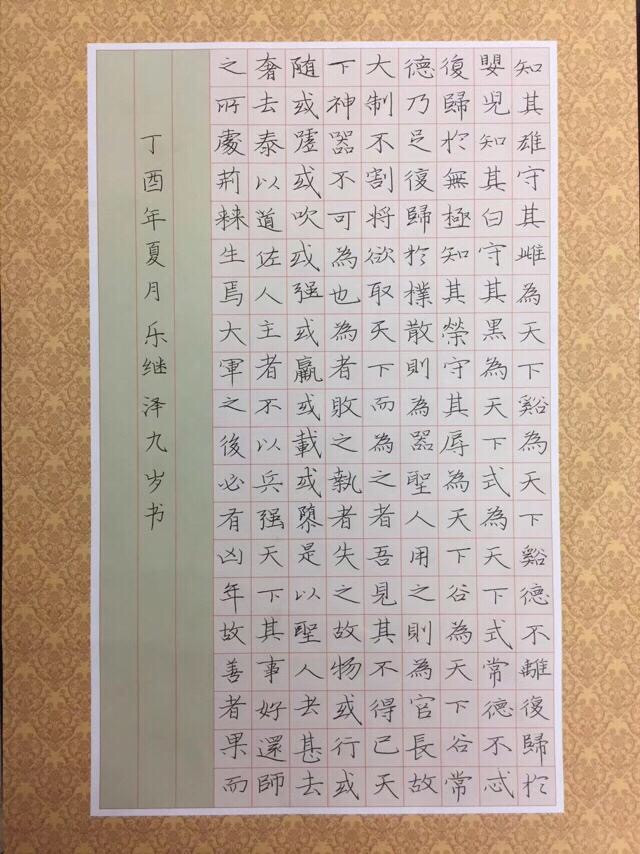 知其雄守其雌為天下谿為天下谿德不離復歸於
嬰兒知其白守其黑為天下式為天下式常德不忒
復歸於無極知其榮守其辱為天下谷為天下谷常
德乃足復歸於樸散則為器聖人用之則為官長故
大制不割將欲取天下而為之者吾見其不得已天
下神器不可為也為者敗之執者失之故物或行或
随或噓或吹或强或羸或載或隳是以聖人去甚去
奢去泰以道佐人主者不以兵强天下其事好還師
之所處荊棘生焉大軍之後必有凶年故善者果而
丁酉年夏月乐继泽九岁书